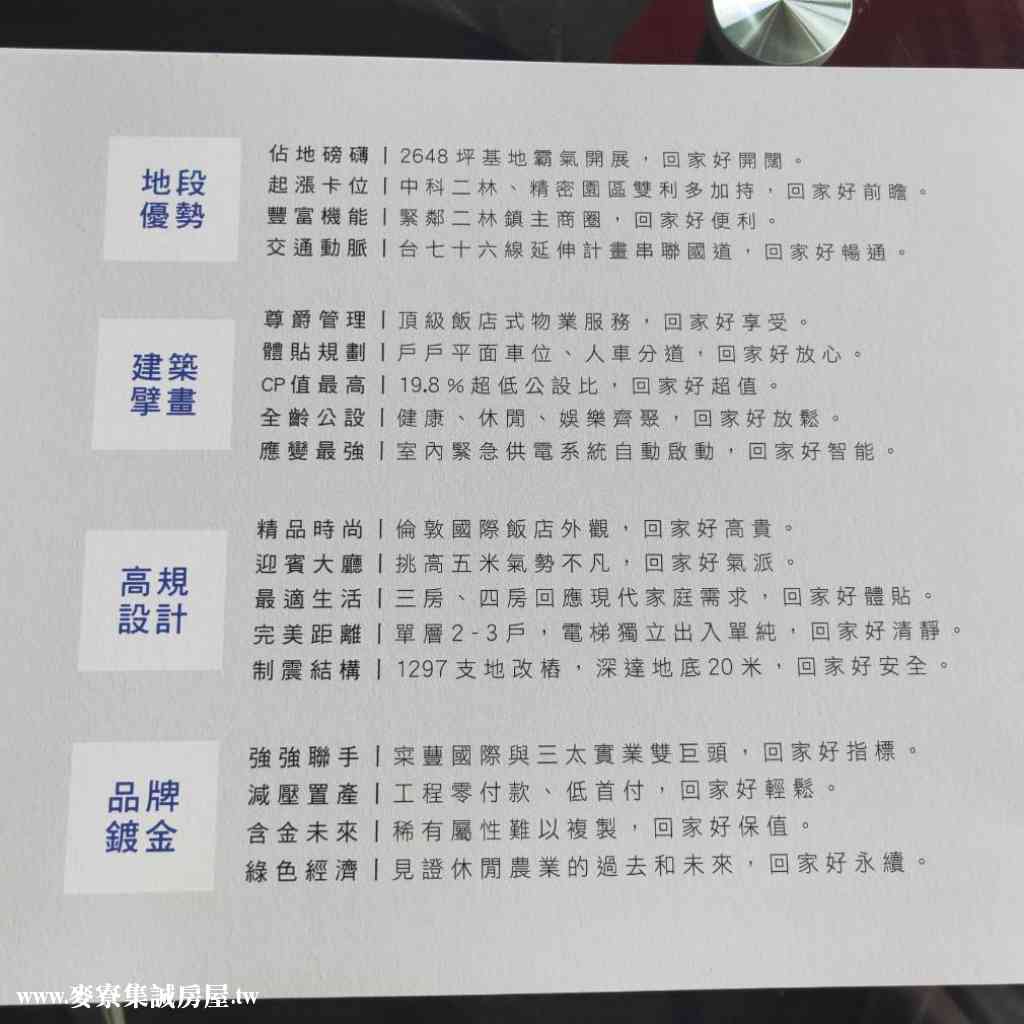 地段
優勢
佔地磅礴｜2648坪基地霸氣開展，回家好開闊。
起漲卡位｜中科二林、精密園區雙利多加持，回家好前瞻。
豐富機能｜緊鄰二林鎮主商圈，回家好便利。
交通動脈｜台七十六線延伸計畫串聯國道，回家好暢通。
建築
擘畫
尊爵管理｜頂級飯店式物業服務，回家好享受。
體貼規劃｜戶戶平面車位、人車分道，回家好放心。
CP值最高｜19.8%超低公設比，回家好超值。
全齡公設｜健康、休閒、娛樂齊聚，回家好放鬆。
應變最強｜室內緊急供電系統自動啟動，回家好智能。
高規
設計
精品時尚｜倫敦國際飯店外觀，回家好高貴。
迎賓大廳｜挑高五米氣勢不凡，回家好氣派。
最適生活｜三房、四房回應現代家庭需求，回家好體貼。
完美距離｜單層2-3戶，電梯獨立出入單純，回家好清靜。
制震結構｜1297支地改樁，深達地底20米，回家好安全。
品牌
鍍金
強強聯手｜寀豐國際與三太實業雙巨頭，回家好指標。
減壓置產｜工程零付款、低首付，回家好輕鬆。
含金未來｜稀有屬性難以複製，回家好保值。
綠色經濟｜見證休閒農業的過去和未來，回家好永續。
www.麥寮集誠房屋.tw